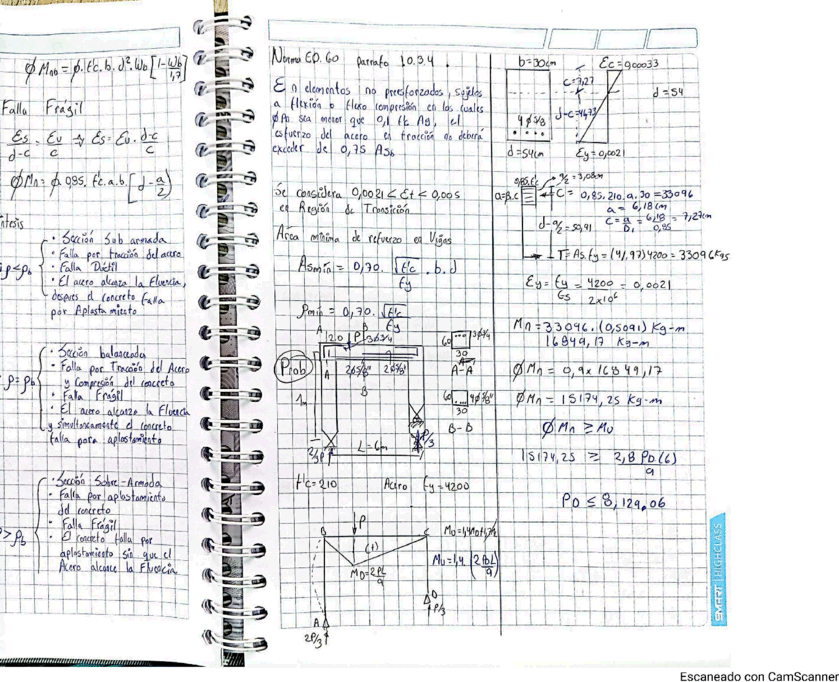 φ Mnb = φ. f'c. b. d². Wb [1 - Wb/1,7]
Falla Frágil
Es/(d-c) = Eu/c ⇒ Es = Eu. (d-c)/c
φ Mn = φ 0,85. f'c. a. b. [d - a/2]
ntesis
· Sección Sub armada
· Falla por tracción del acero
ρ < ρb
· Falla Dúctil
· El acero alcanza la Fluencia,
despues el concreto falla
por Aplastamiento
· Sección balanceada
· Falla por Tracción del Acero
ρ = ρb
y Compresión del concreto
· Falla Frágil
· El acero alcanza la Fluencia
y simultaneamente el concreto
falla para aplastamiento
· Sección Sobre-Armada
· Falla por aplastamiento
del concreto
· Falla Frágil
> ρb
· El concreto falla por
aplastamiento sin que el
Acero alcance la Fluencia
Norma E0.60 parrafo 10.3.4.
En elementos no preesforzados, sujetos
a flexión o flexo compresión en los cuales
φ Pn sea menor que 0,1 f'c Ag, el
esfuerzo del acero en tracción no deberá
exceder de 0,75 Asb
Se considera 0,0021 < Et < 0,005
en Región de Transición
Area mínima de refuerzo en Vigas
Asmín = 0,70. √f'c/fy . b. d
ρmín = 0,70. √f'c/fy
A
B
1
2.0
P
3φ3/4
60
3φ3/4
30
A-A
Prob
A
2φ5/8"
2φ5/8"
B
60
4φ5/8"
30
B-B
2/3P
L=6m
P/3
f'c=210
Acero fy=4200
B
P
C
Mu=1,4
(2PDL/9)
(+)
MD=2PL/9
D
P/3
A
2P/3
b=30cm
Ec=0,00033
c=7,27
d=54
4φ5/8
d-c=46,73
d=54cm
Ey=0,0021
0,85.f'c
a/2=3,08cm
a=β.c
C = 0,85.210.a.30=33096
a = 6,18cm
c = a/β1 = 6,18/0,85 = 7,27cm
d-a/2=50,91
T=As.fy=(7,97)4200=33096Kgs
Ey = fy/Es = 4200/2x10⁶ = 0,0021
Mn=33096.(0,5091) Kg-m
16849,17 Kg-m
φMn = 0,9x16849,17
φMn = 15174,25 Kg-m
φMn ≥ Mu
15174,25 ≥ 2,8PD(6)/9
PD ≤ 8,129,06
SMART | HIGHCLASS
Escaneado con CamScanner